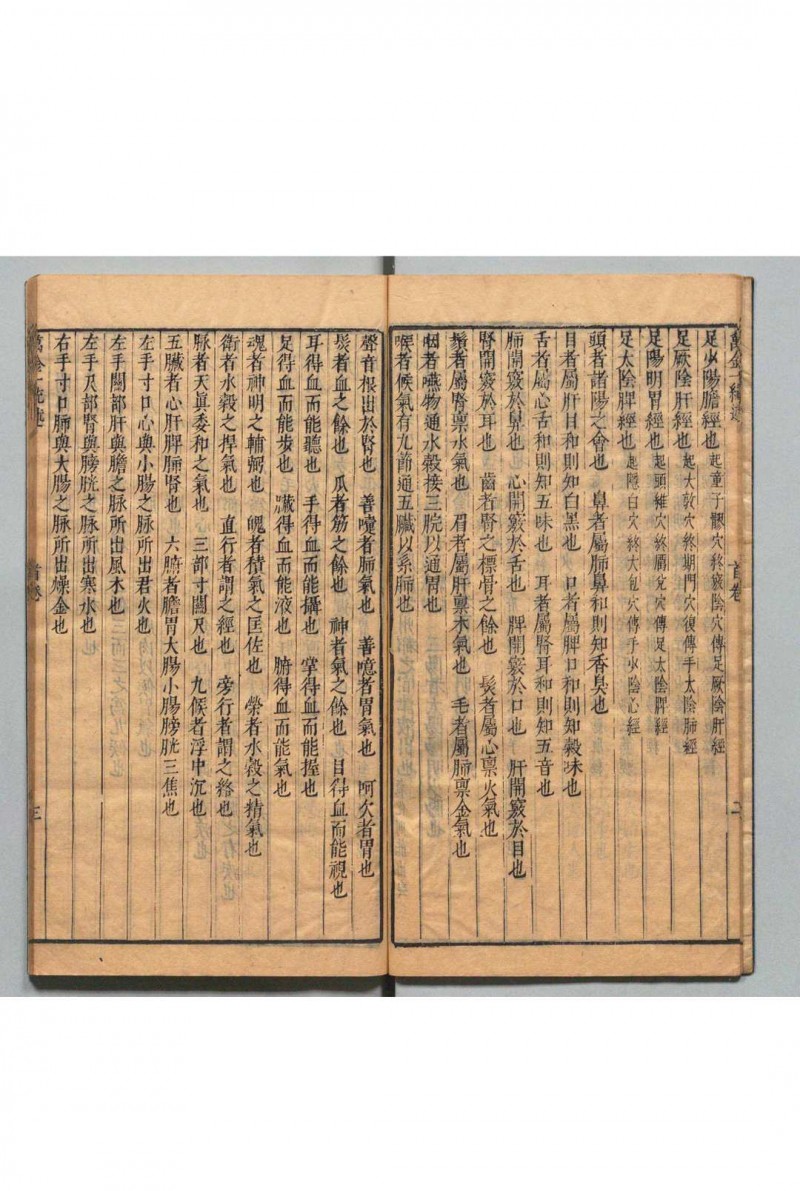 萬金一統述 首卷 二
足少陽膽經也 起童子髎穴終竅陰穴傳足厥陰肝經
足厥陰肝經也 起大敦穴終期門穴復傳手太陰肺經
足陽明胃經也 起頭維穴終厲兌穴傳足太陰脾經
足太陰脾經也 起隱白穴終大包穴傳手少陰心經
頭者諸陽之會也 鼻者屬肺鼻和則知香臭也
目者屬肝目和則知白黑也 口者屬脾口和則知穀味也
舌者屬心舌和則知五味也 耳者屬腎耳和則知五音也
肺開竅於鼻也 心開竅於舌也 脾開竅於口也 肝開竅於目也
腎開竅於耳也 齒者腎之標骨之餘也 髮者屬心稟火氣也
鬚者屬腎稟水氣也 眉者屬肝稟木氣也 毛者屬肺稟金氣也
咽者嚥物通水穀接三脘以通胃也
喉者候氣有九節通五臟以系肺也
聲音根出於腎也 善嚏者肺氣也 善噫者胃氣也 呵欠者胃也
髮者血之餘也 爪者筋之餘也 神者氣之餘也 目得血而能視也
耳得血而能聽也 手得血而能攝也 掌得血而能握也
足得血而能步也 臟得血而能液也 腑得血而能氣也
魂者神明之輔弼也 魄者積氣之匡佐也 榮者水穀之精氣也
衛者水穀之悍氣也 直行者謂之經也 旁行者謂之絡也
脉者天眞委和之氣也 三部寸關尺也 九候者浮中沉也
五臟者心肝脾肺腎也 六腑者膽胃大腸小腸膀胱三焦也
左手寸口心與小腸之脉所出君火也
左手關部肝與膽之脉所出風木也
左手尺部腎與膀胱之脉所出寒水也
右手寸口肺與大腸之脉所出燥金也
萬金一統述 首卷 三